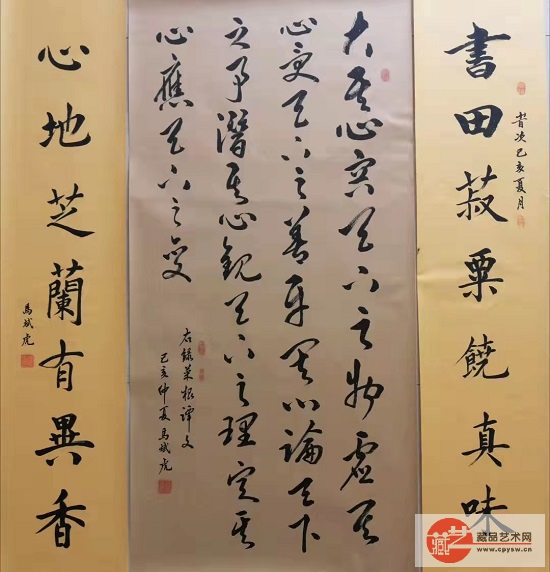 書田菽粟饒真味
歲次己亥夏月
大其心容天下之物虛其
心受天下之善平其心論天下
之事潛其心觀天下之理定其
心應天下之變
右錄菜根譚文
己亥仲夏馬斌虎
心地芝蘭有異香
馬斌虎
藏艺
藏品艺术网
www.cpysw.cn